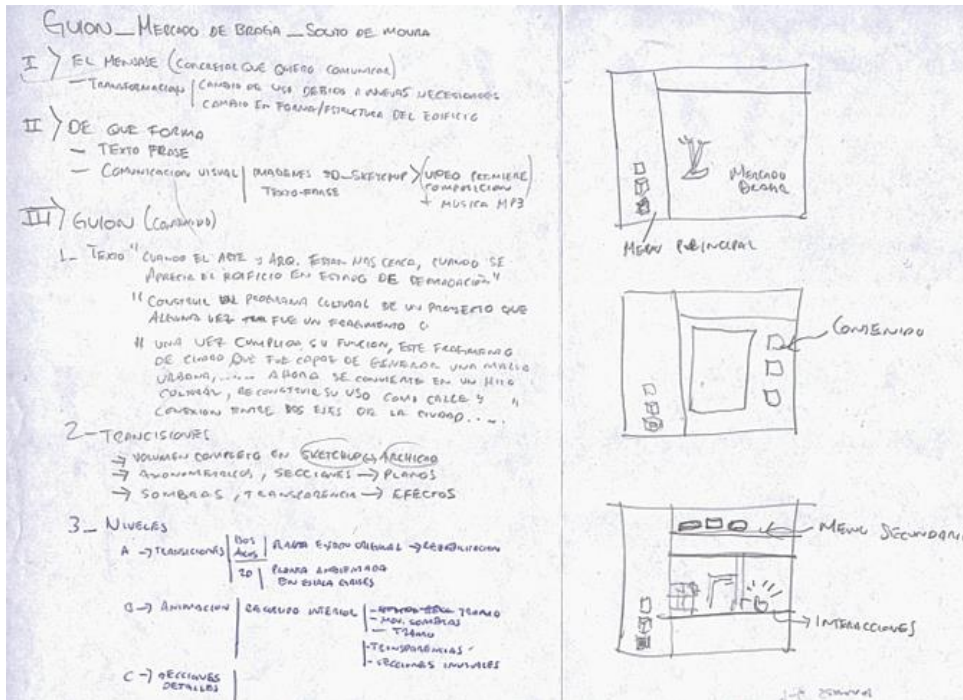 GUION_MERCADO DE BRAGA_SOUTO DE MOURA
I > EL MENSAJE (CONCRETAR QUE QUIERO COMUNICAR)
— TRANSFORMACION | CAMBIO DE USO DEBIDO A NUEVAS NECESIDADES
CAMBIO EN FORMA/ESTRUCTURA DEL EDIFICIO
II > DE QUE FORMA
— TEXTO FRASE
— COMUNICACION VISUAL | IMAGENES 3D_SKETCHUP > (VIDEO PREMIERE
TEXTO-FRASE COMPOSICION
+ MUSICA MP3)
III > GUION (CONTENIDO)
1_ TEXTO "CUANDO EL ARTE Y ARQ. ESTAN MAS CERCA, CUANDO SE
APRECIA EL EDIFICIO EN ESTADO DE DEGRADACIÓN"
"CONSTRUIR UN PROGRAMA CULTURAL DE UN PROYECTO QUE
ALGUNA VEZ FUE UN FRAGMENTO
" UNA VEZ CUMPLIDA SU FUNCION, ESTE FRAGMENTO
DE CIUDAD QUE FUE CAPAZ DE GENERAR UNA MALLA
URBANA, ...... AHORA SE CONVIERTE EN UN HITO
CULTURAL, RECONSTRUIR SU USO COMO CALLE Y
CONEXION ENTRE DOS EJES DE LA CIUDAD...."
2_ TRANCISIONES
→ VOLUMEN COMPLETO EN SKETCHUP ARCHICAD
→ AXONOMETRICAS, SECCIONES → PLANOS
→ SOMBRAS, TRANSPARENCIA → EFECTOS
3_ NIVELES
A → TRANSICIONES | DOS | PLANTA ORIGINAL → REHABILITACION
2D | PLANTA AMBIENTADA
EN ESCALA GRISES
B → ANIMACION | RECORRIDO INTERIOR | TRAMO
- MOV. SOMBRAS
— TRAMO
- TRANSPARENCIAS
- SECCIONES INUSUALES
C → SECCIONES
DETALLES
MERCADO
BRAGA
MENU PRINCIPAL
CONTENIDO
MENU SECUNDARI
INTERACCIONES